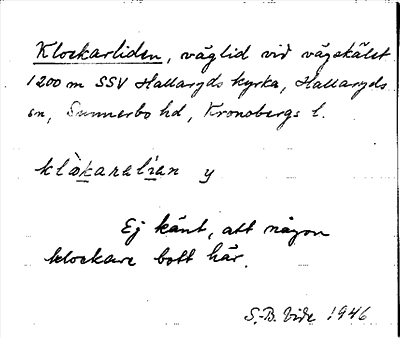 Klockarliden, väglid vid vägskälet
1200 m SSV Hallaryds kyrka, Hallaryds
sn, Sunnerbo hd, Kronobergs l.
klàkanelían y
Ej känt, att någon
klockare bott här.
S.-B. Vide 1946